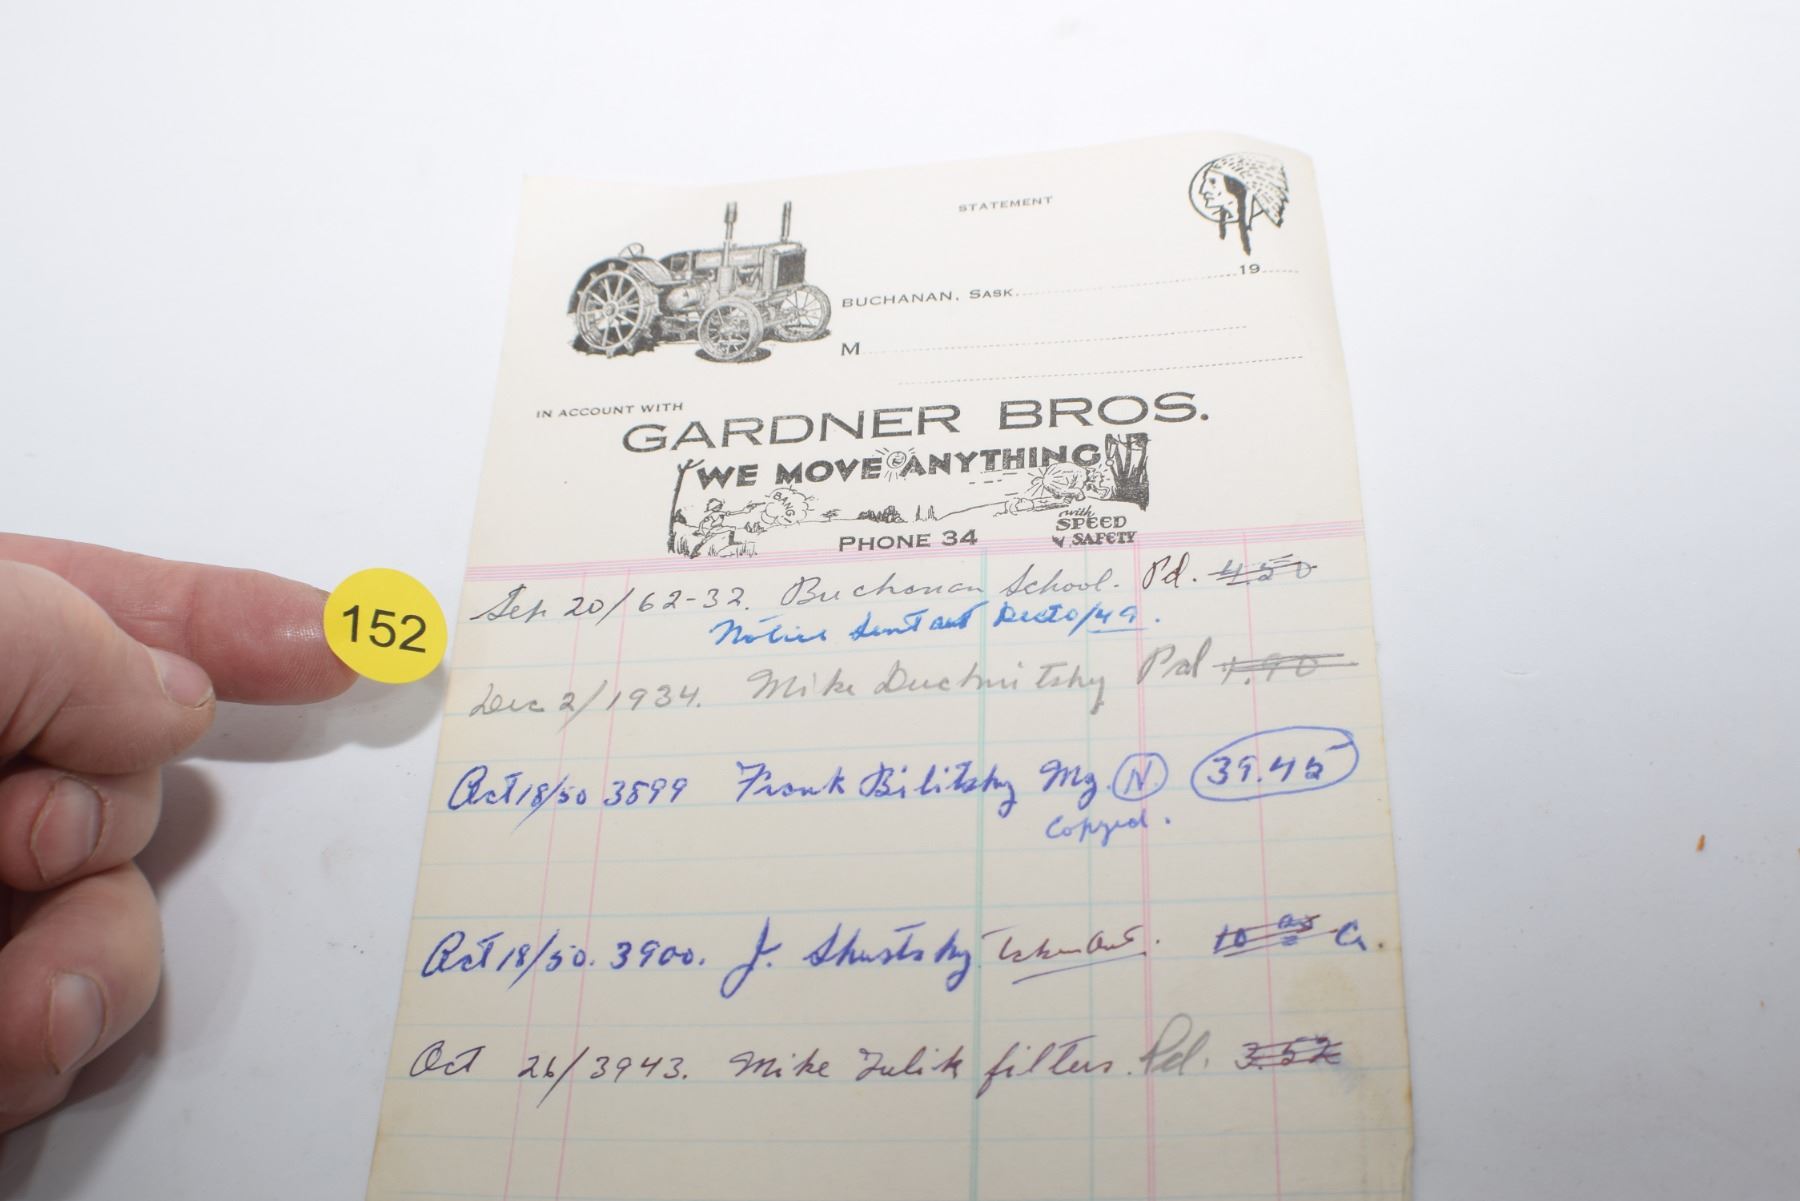 STATEMENT
BUCHANAN, SASK. 19
M
IN ACCOUNT WITH
GARDNER BROS.
WE MOVE ANYTHING
BANG!
with
SPEED
SAFETY
PHONE 34
152
Sep 20/62-32. Buchanan School. Pd. 4.50
Notice Sent out Dec 20/49.
Dec 2/1934. Mike Pd
Oct 18/50 3899 Frank Bilitsky Mg. N 39.45
Copyed.
Oct 18/50. 3900. J. Shustsky Taken Out. 10 Cr.
Oct 26/3943. Mike Tulik filters. Pd. 3.52